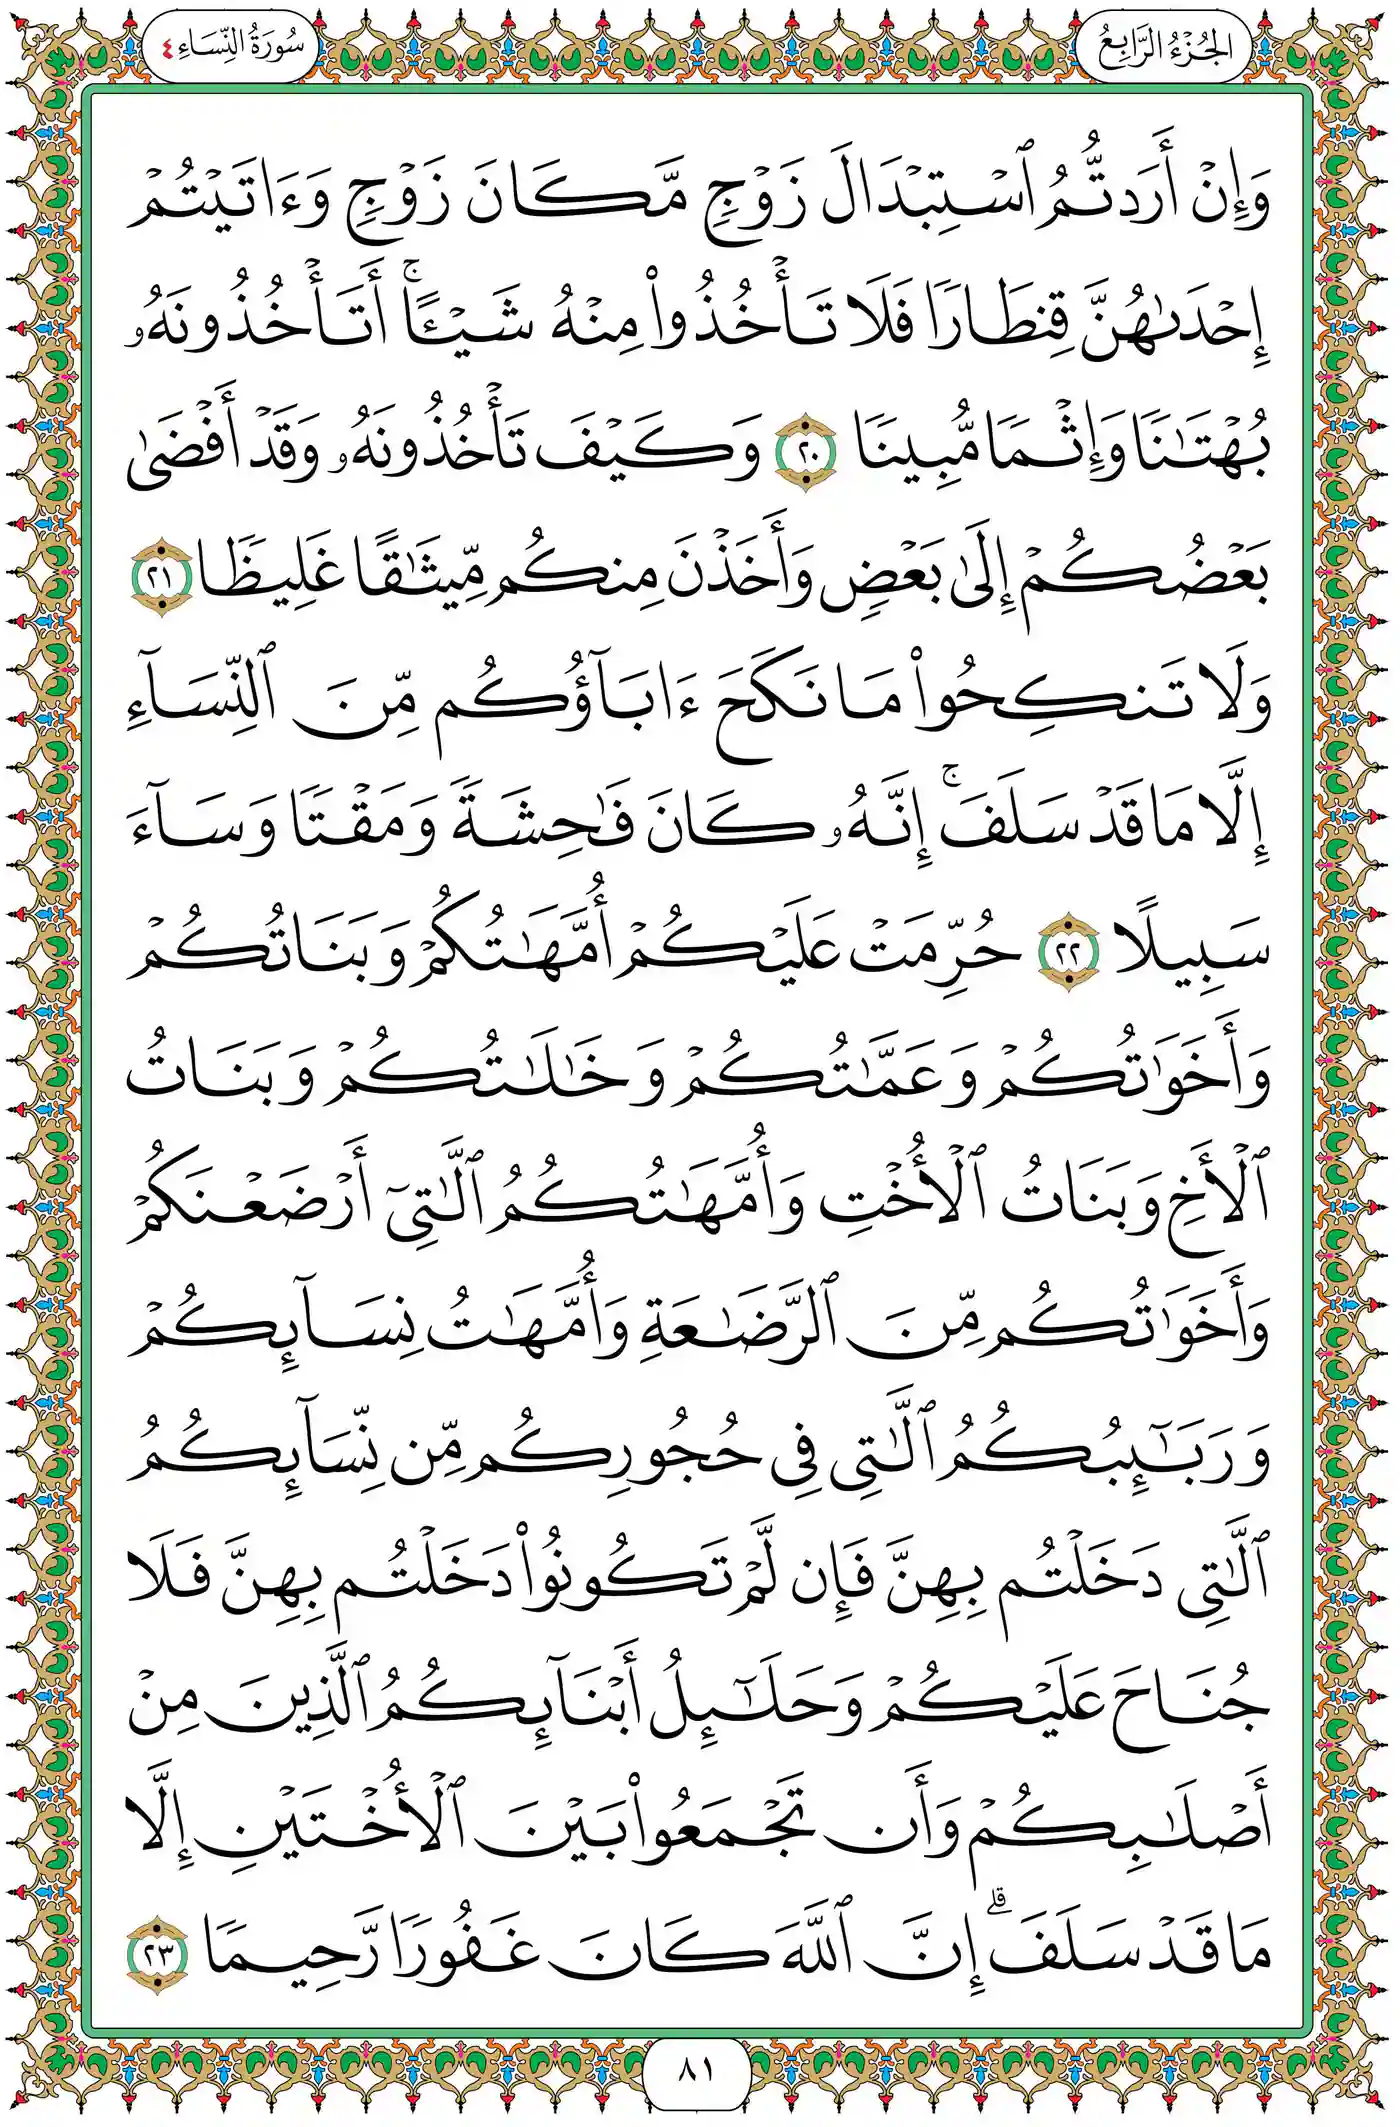 الجُزْءُ الرَّابِعُ
سُورَةُ النِّسَاءِ ٤
وَإِنۡ أَرَدتُّمُ ٱسۡتِبۡدَالَ زَوۡجٖ مَّكَانَ زَوۡجٖ وَءَاتَيۡتُمۡ
إِحۡدَىٰهُنَّ قِنطَارٗا فَلَا تَأۡخُذُواْ مِنۡهُ شَيۡـًٔاۚ أَتَأۡخُذُونَهُۥ
بُهۡتَٰنٗا وَإِثۡمٗا مُّبِينٗا ٢٠ وَكَيۡفَ تَأۡخُذُونَهُۥ وَقَدۡ أَفۡضَىٰ
بَعۡضُكُمۡ إِلَىٰ بَعۡضٖ وَأَخَذۡنَ مِنكُم مِّيثَٰقًا غَلِيظٗا ٢١
وَلَا تَنكِحُواْ مَا نَكَحَ ءَابَآؤُكُم مِّنَ ٱلنِّسَآءِ
إِلَّا مَا قَدۡ سَلَفَۚ إِنَّهُۥ كَانَ فَٰحِشَةٗ وَمَقۡتٗا وَسَآءَ
سَبِيلًا ٢٢ حُرِّمَتۡ عَلَيۡكُمۡ أُمَّهَٰتُكُمۡ وَبَنَاتُكُمۡ
وَأَخَوَٰتُكُمۡ وَعَمَّٰتُكُمۡ وَخَٰلَٰتُكُمۡ وَبَنَاتُ
ٱلۡأَخِ وَبَنَاتُ ٱلۡأُخۡتِ وَأُمَّهَٰتُكُمُ ٱلَّٰتِيٓ أَرۡضَعۡنَكُمۡ
وَأَخَوَٰتُكُم مِّنَ ٱلرَّضَٰعَةِ وَأُمَّهَٰتُ نِسَآئِكُمۡ
وَرَبَٰٓئِبُكُمُ ٱلَّٰتِي فِي حُجُورِكُم مِّن نِّسَآئِكُمُ
ٱلَّٰتِي دَخَلۡتُم بِهِنَّ فَإِن لَّمۡ تَكُونُواْ دَخَلۡتُم بِهِنَّ فَلَا
جُنَاحَ عَلَيۡكُمۡ وَحَلَٰٓئِلُ أَبۡنَآئِكُمُ ٱلَّذِينَ مِنۡ
أَصۡلَٰبِكُمۡ وَأَن تَجۡمَعُواْ بَيۡنَ ٱلۡأُخۡتَيۡنِ إِلَّا
مَا قَدۡ سَلَفَۗ إِنَّ ٱللَّهَ كَانَ غَفُورٗا رَّحِيمٗا ٢٣
٨١